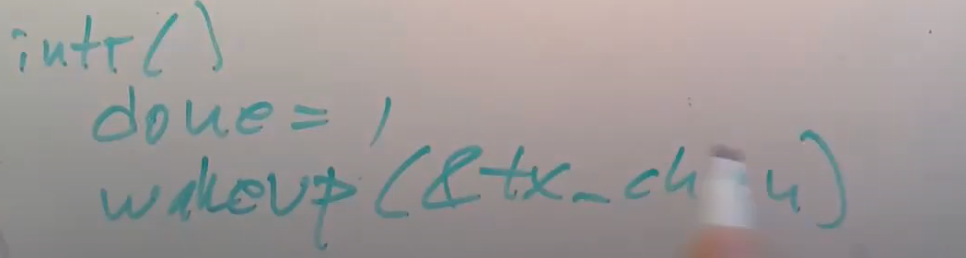 intr()
done = 1
wakeup(&tx_chan)